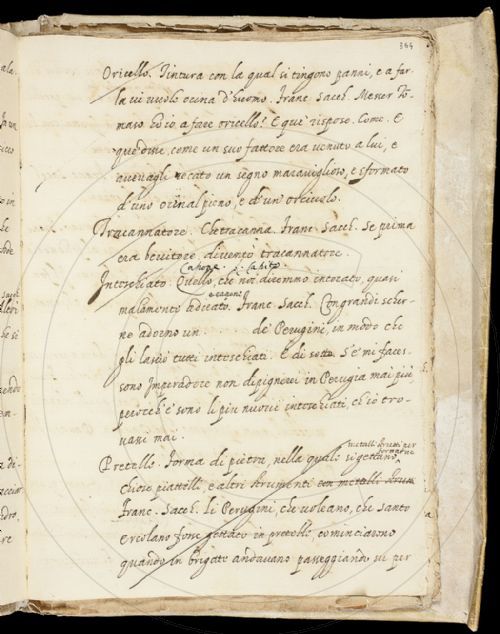 364
Oricello. Tintura con la qual si tingono panni, e a far-
la vi vuole orina d'huomo. Franc. Sacch. Messer To-
maso. Ed io, a fare oricello? E que' rispose. Come. E
que' disse, come un suo fattore era venuto a lui, e
avevagli recato un segno maraviglioso, e sformato
d'uno orinal pieno, e d'un orciuolo.
Tracannatore. Che tracanna. Franc. Sacch. Se prima
era bevitore, diventò tracannatore.
Intoschiato. Quello, che noi diremmo intorato, quasi
malamente adirato. Franc. Sacch. Con grandi scher-
ne adorno un de' Perugini, in modo che
gli lasciò tutti intoschiati. E di sotto. S'e' mi faces-
sono Imperadore non dipignerei in Perugia mai più
perocch'e' sono li più nuovi che io tro-
vassi mai.
Pretello. Forma di pietra, nella quale si gettano
metalli strutti per
formarne
piattelli, e altri strumenti con metalli
Franc. Sacch. Li Perugini, che voleano, che Santo
Ercolano fosse gettato in pretelle, cominciarono
quando in brigate andavano passeggiando su per